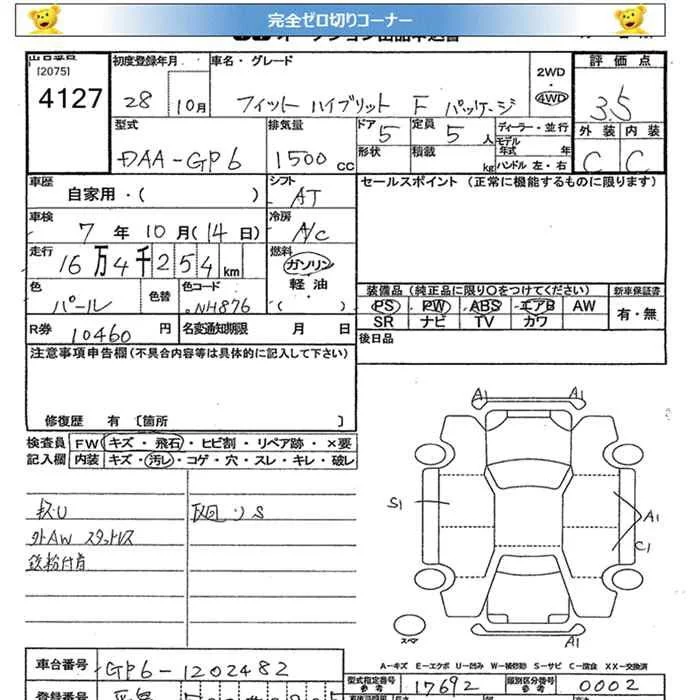 完全ゼロ切りコーナー
出品番号
[2075]
4127
初度登録年月
28 10月
車名・グレード
フィット ハイブリット F パッケージ
2WD
・
4WD
評価点
3.5
外装 内装
C C
型式
DAA-GP6
排気量
1500 CC
ドア 5
形状
定員 5 人
積載 kg
ディーラー・並行
モデル年式 年
ハンドル 左・右
車歴
自家用・( )
シフト
AT
セールスポイント (正常に機能するものに限ります)
車検
7 年 10 月 (14 日)
冷房
A/C
走行
16 万 4 千 2 5 4 km
燃料
ガソリン
軽油
・( )
色
パール
色替
色コード
NH876
装備品 (純正品に限り○をつけてください)
PS PW ABS エアB AW
SR ナビ TV カワ
新車保証書
有・無
R券 10460 円
名変通知期限 月 日
後日品
注意事項申告欄(不具合内容等は具体的に記入して下さい)
修復歴 有 〔箇所 〕
検査員記入欄
FW キズ・飛石・ヒビ割・リペア跡・×要
内装 キズ・汚レ・コゲ・穴・スレ・キレ・破レ
外AW スタットレス
鉄粉付着
A1 A1
S1
A1
C1
A1
スマ
A-キズ E-エクボ U-凹み W-補修跡 S-サビ C-腐食 XX-交換済
車台番号
GP6-1202482
型式指定番号
参考
17692
類別区分番号
参考
0002
登録番号